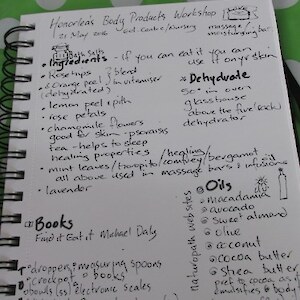 Honorlea's Body Products Workshop
21 May 2016
massage /
moisturising bar
Bath Salts
• Ingredients - if you can eat it you can
use it on yr skin
• Rosehips } blend
• Orange peel } in vitamiser
(dehydrated)
• lemon peel & pith
• rose petals
• chamomile flowers
good for skin - psoriasis
tea - helps to sleep
healing properties
• mint leaves / / comfrey / bergamot
healing
all above used in massage bars & infusions
• lavender
• Dehydrate
in oven
glasshouse
above the fire (rack)
dehydrator
Books
Find it Eat it Michael Daly
• dropper • measuring spoons
• crockpot • books
• bowls (ss) electronic scales
naturopath websites
Oils
• macadamia
• avocado
• sweet almond
• olive
• coconut
• cocoa butter
• shea butter
pref to cocoa as it
emulsifies to body